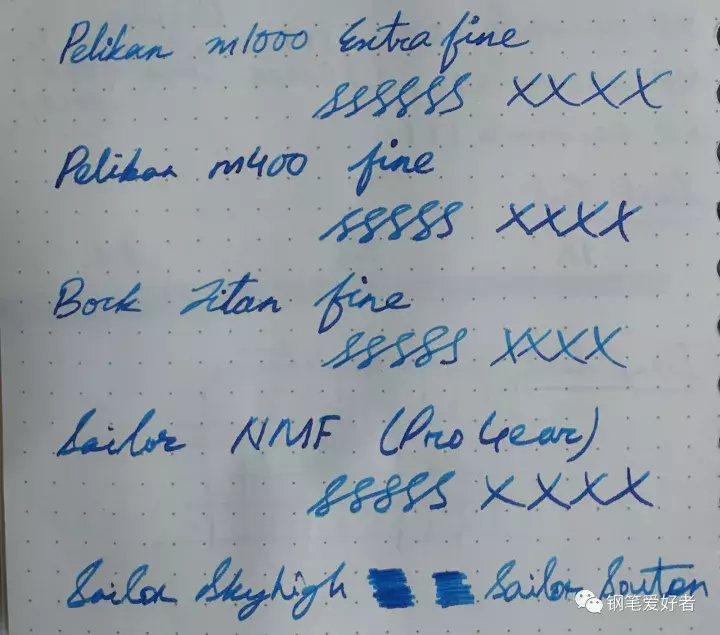 Pelikan m1000 Extra fine
ssssss XXXX
Pelikan m400 fine
sssss XXXX
Bock Titan fine
sssss XXXX
Sailor NMF (Pro Gear)
sssss XXXX
Sailor Skyhigh Sailor Souten
钢笔爱好者